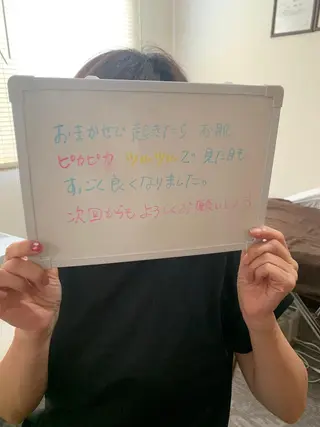 おまかせで 起きたら お肌
ピカピカ で 見た目も
すごく良くなりました。
次回からも よろしくお願いします